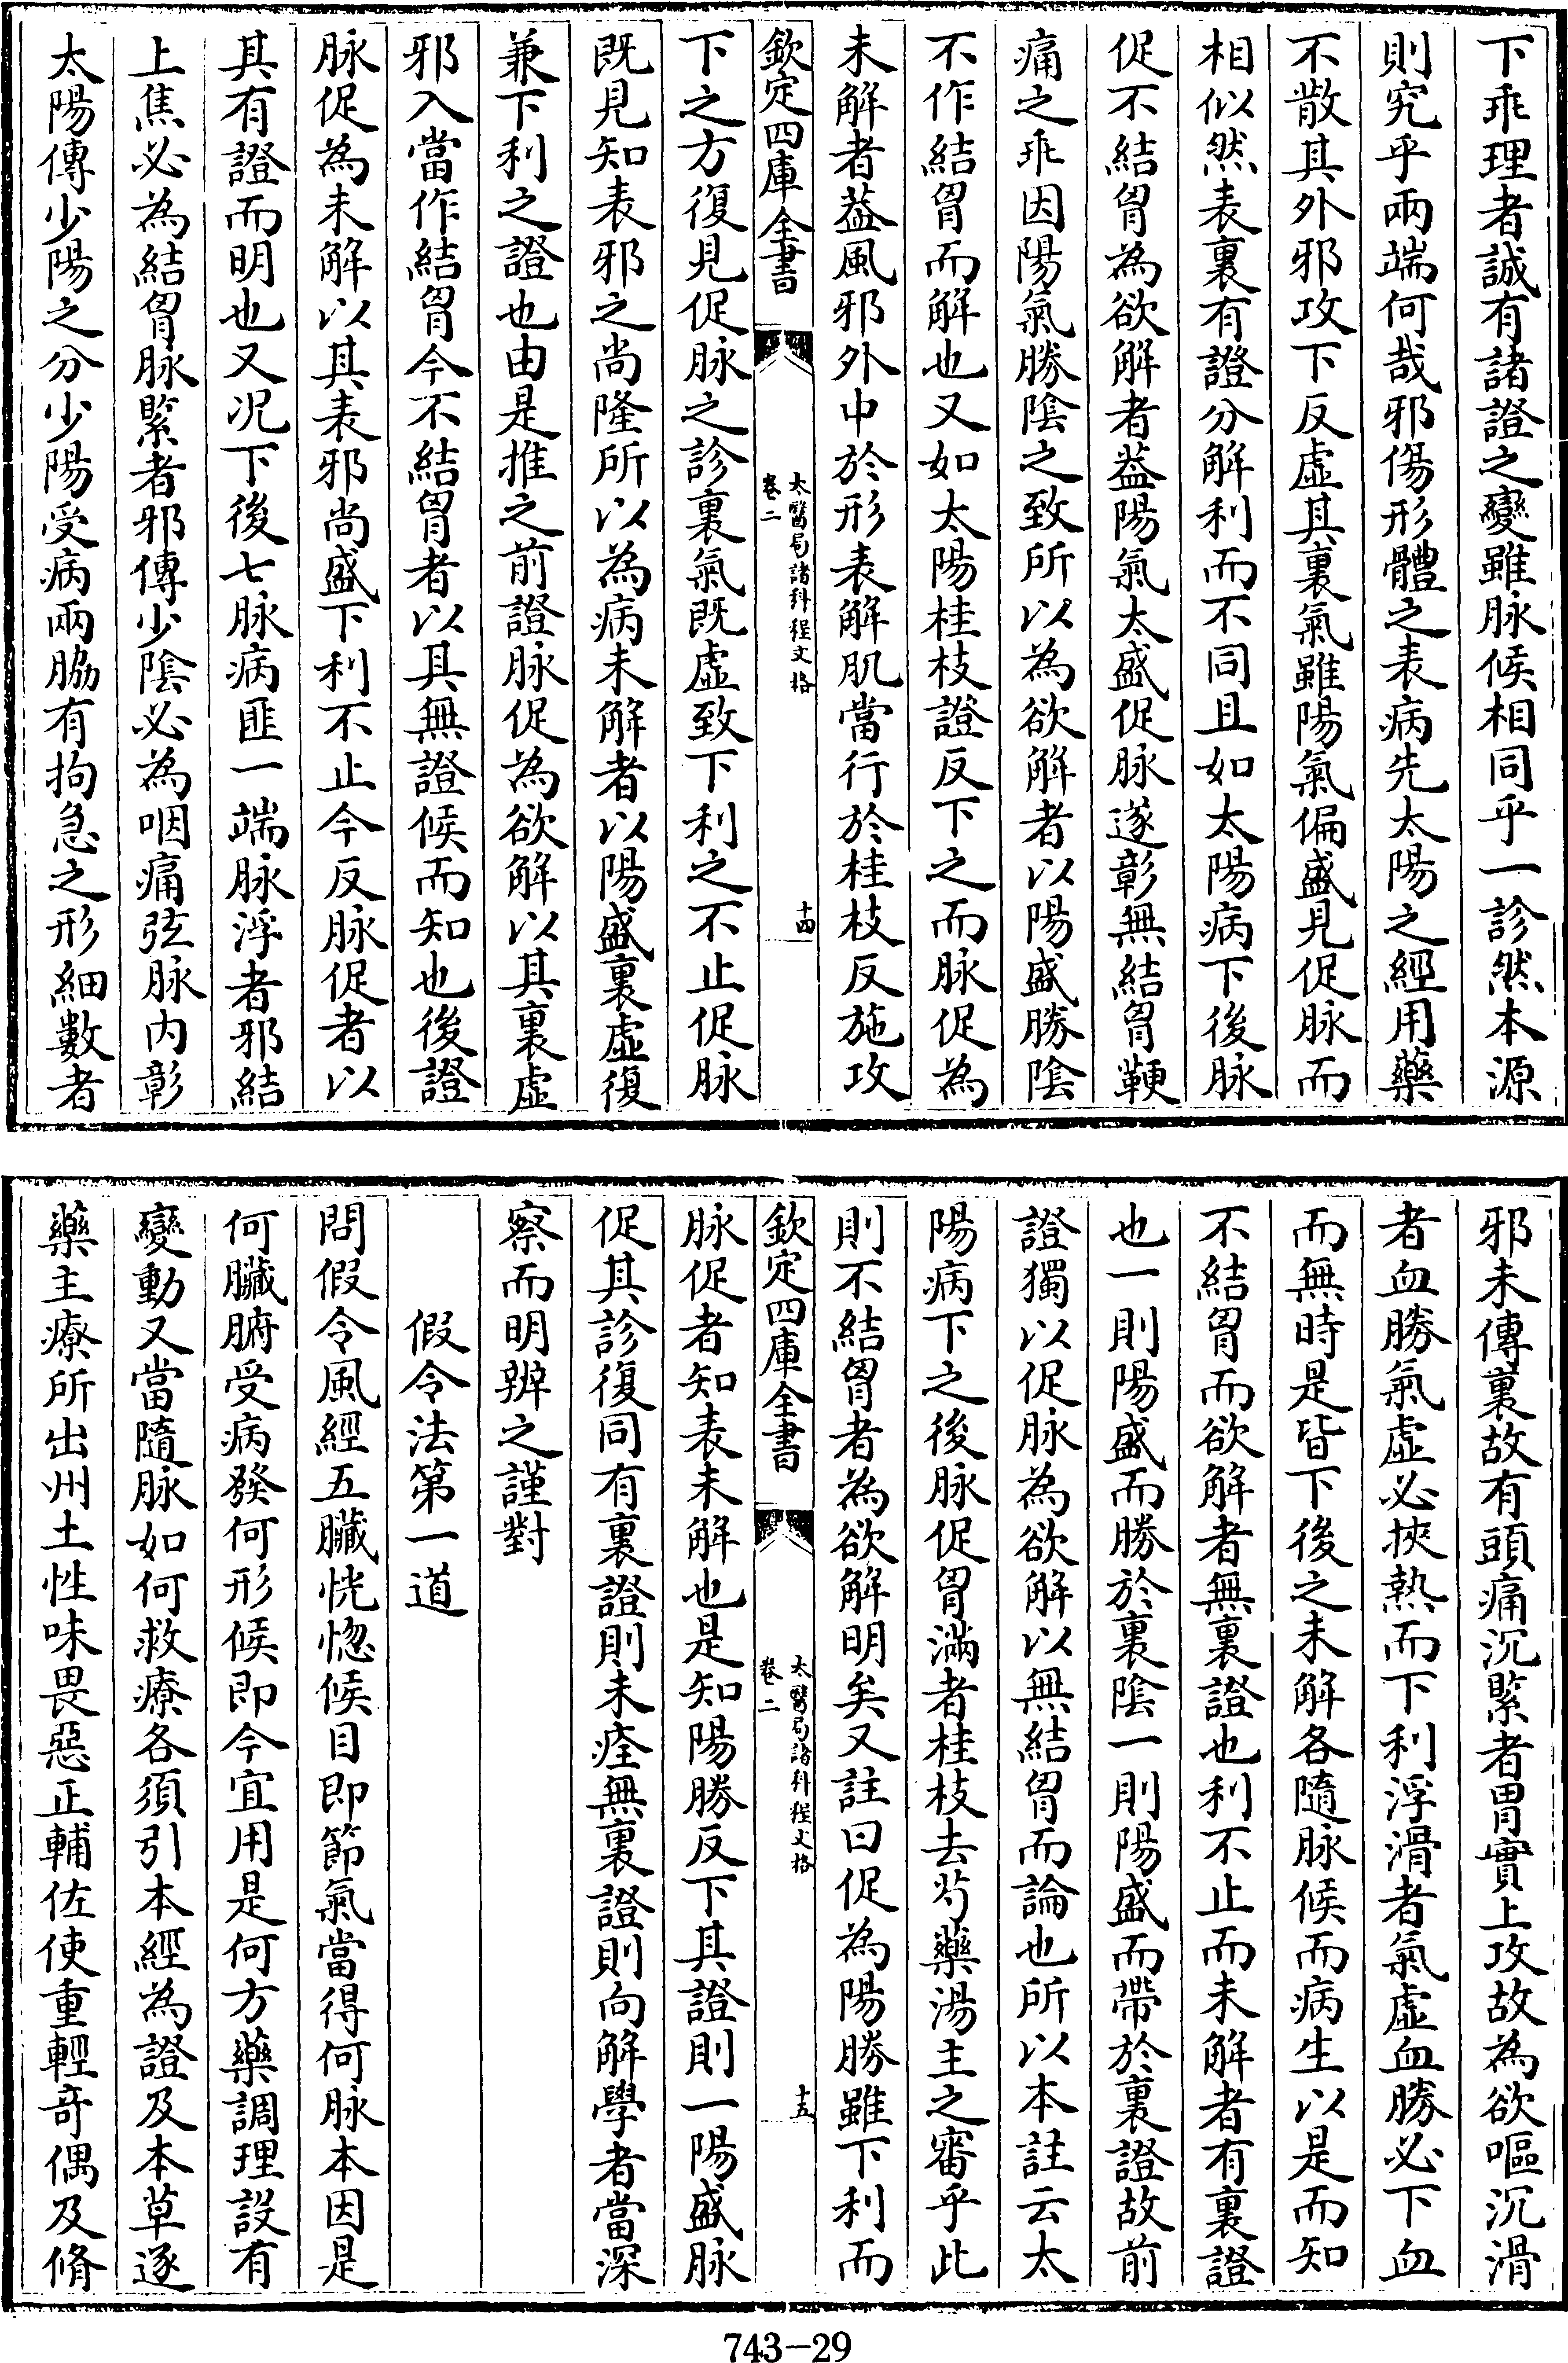 下乖理者誠有諸證之變雖脉候相同乎一診然本源
則究乎兩端何哉邪傷形體之表病先太陽之經用藥
不散其外邪攻下反虛其裏氣雖陽氣偏盛見促脉而
相似然表裏有證分解利而不同且如太陽病下後脉
促不結胷為欲解者葢陽氣太盛促脉遂彰無結胷鞕
痛之乖因陽氣勝陰之致所以為欲解者以陽盛勝陰
不作結胷而解也又如太陽桂枝證反下之而脉促為
未解者葢風邪外中於形表解肌當行於桂枝反施攻
欽定四庫全書
太醫局諸科程文格
卷二
十四
下之方復見促脉之診裏氣既虛致下利之不止促脉
既見知表邪之尚隆所以為病未解者以陽盛裏虛復
兼下利之證也由是推之前證脉促為欲解以其裏虛
邪入當作結胷今不結胷者以具無證候而知也後證
脉促為未解以其表邪尚盛下利不止今反脉促者以
其有證而明也又况下後七脉病匪一端脉浮者邪結
上焦必為結胷脉緊者邪傳少陰必為咽痛弦脉内彰
太陽傳少陽之分少陽受病兩脇有拘急之形細數者
邪未傳裏故有頭痛沉緊者胃實上攻故為欲嘔沉滑
者血勝氣虛必挾熱而下利浮滑者氣虛血勝必下血
而無時是皆下後之未解各隨脉候而病生以是而知
不結胷而欲解者無裏證也利不止而未解者有裏證
也一則陽盛而勝於裏陰一則陽盛而帶於裏證故前
證獨以促脉為欲解以無結胷而論也所以本註云太
陽病下之後脉促胷滿者桂枝去芍藥湯主之審乎此
則不結胷者為欲解明矣又註曰促為陽勝雖下利而
欽定四庫全書
太醫局諸科程文格
卷二
十五
脉促者知表未解也是知陽勝反下其證則一陽盛脉
促其診復同有裏證則未痊無裏證則向解學者當深
察而明辨之謹對
假令法第一道
問假令風經五臟恍惚候目即節氣當得何脉本因是
何臟腑受病發何形候即今宜用是何方藥調理設有
變動又當隨脉如何救療各須引本經為證及本草逐
藥主療所出州土性味畏惡正輔佐使重輕竒偶及脩
743-29